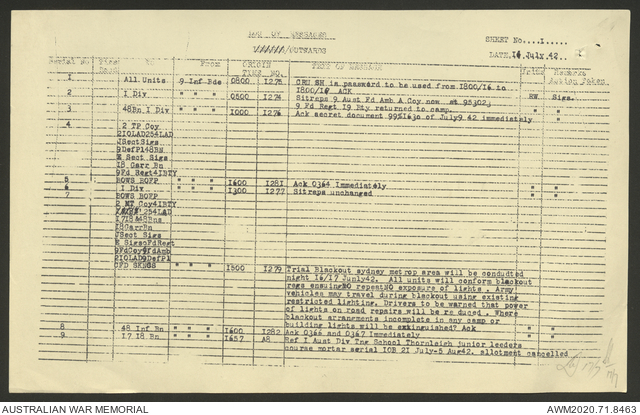 LOG OF MESSAGES
OUTWARDS
SHEET No...I.....
DATE. 16 July 42..
Serial No Time To From ORIGIN TIME NO. TYPE OF MESSAGE Prio Remarks Action Taken
1 All Units 9 Inf Bde 0800 I275 CRUSH is password to be used from I800/16 to
I800/17 ACK
2 I Div " " " 0800 I274 Sitreps 9 Aust Fd Amb A Coy now at 953023 RW Sigs.
9 Fd Regt 19 Bty returned to camp.
3 48Bn I Div " " " I000 I276 Ack secret document 99S1630 of July9 42 immediately " "
4 2 TP Coy
2IOLAD254LAD
JSectSigs
9DefPl48BN
E Sect Sigs
I8 Garr Bn
9Fd Regt4IBTY
5 BOWS BOFP " " " I600 I281 Ack 0364 Immediately " "
6 I Div " " " I300 I277 Sitreps unchanged " "
7 BOWS BOFP
2 MT Coy4IBTY
254LAD
I7I8&48Bns
I8GarrBn
JSect Sigs
E Sigs9FdRegt
9FdCoy9FdAmb
2IOLAD9DefPl
CFD SENGS " " " I500 I279 Trial Blackout sydney metrop area will be condudted
night I6/I7 Junly42. All units will conform blackout
regs ensuingNO repeatNO exposure of lights . Army
vehicles may travel during blackout using existing
restricted lighting. Drivers to be warned that power
of lights on road repairs will be re duced . Where
blackout arrangements incomplete in any camp or
building lights will be exbinguished? Ack " "
8 48 Inf Bn " " " I600 I282 Ack 0366 and 0367 Immediately " "
9 I7 I8 Bn " " " I657 A8 Ref I Aust Div Tng School Thornleigh junior leeders
course mortar serial IOB 21 July-5 Aug42. allotment cancelled
AUSTRALIAN WAR MEMORIAL
AWM2020.71.8463